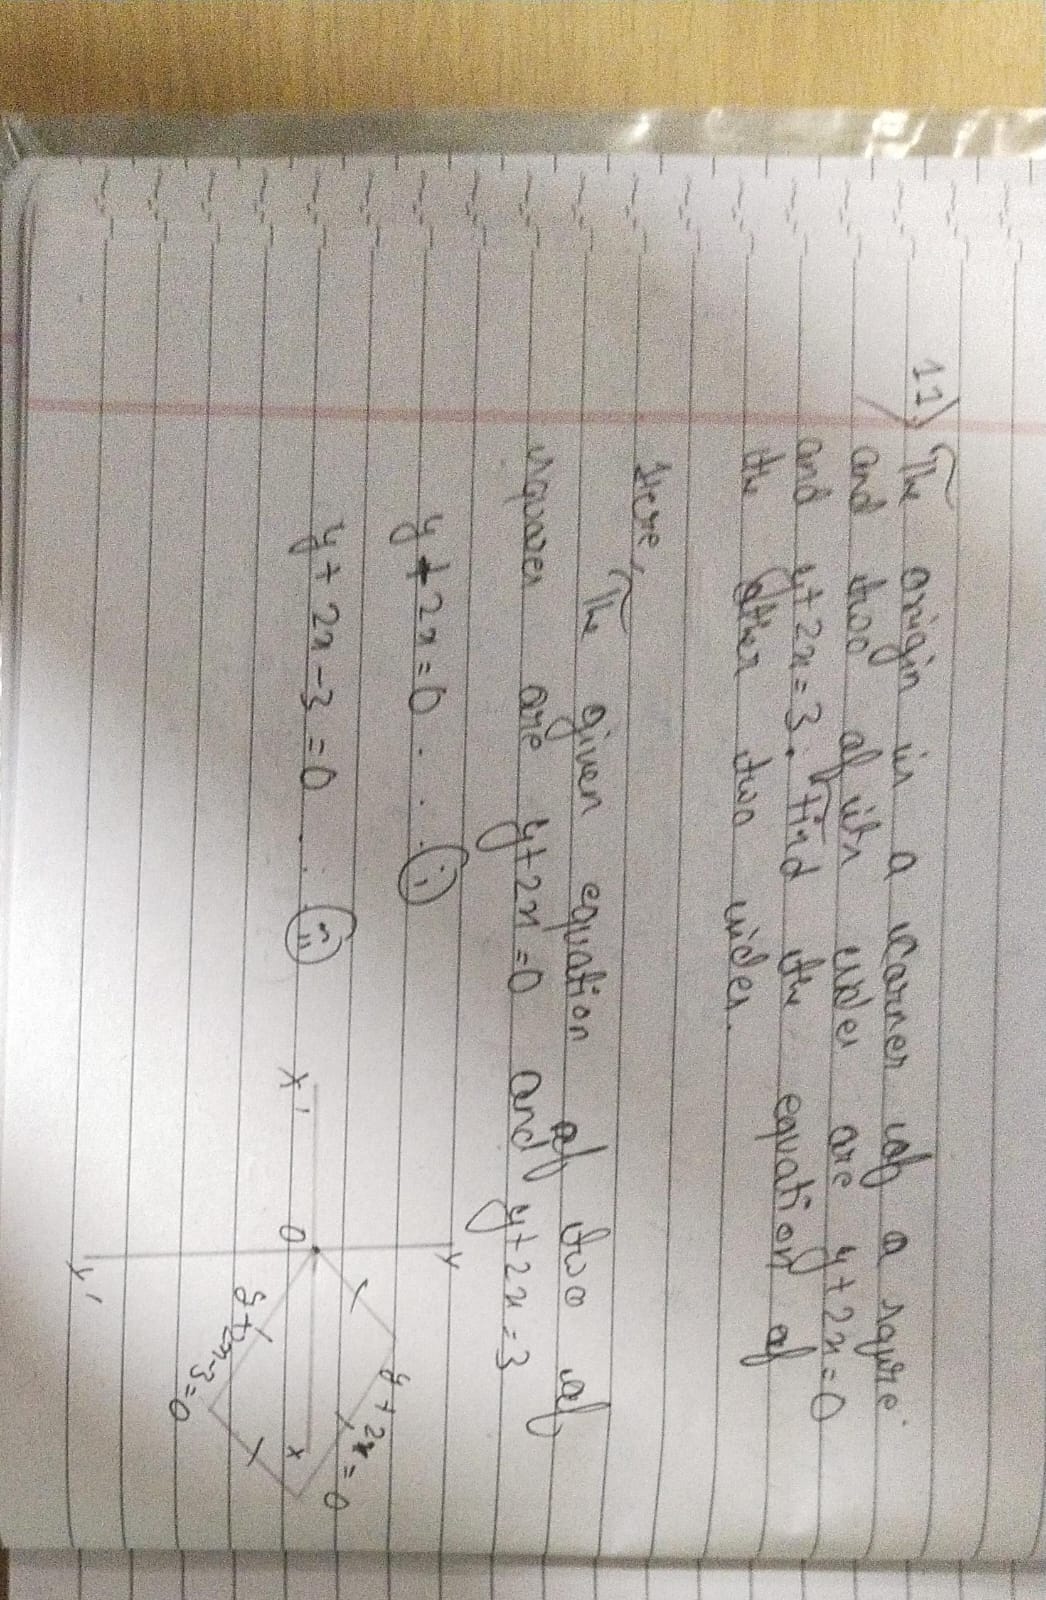 11) The origin is a corner of a squre.
and two of its sides are y+2x=0
and y+2x=3. Find the equation of
the other two sides.
Here,
The given equation of two of
squares are y+2x=0 and y+2x=3
y+2x=0 . . . (i)
y+2x-3=0 . . . (ii)
Y
X' O X
Y'
y+2x=0
y+2x-3=0